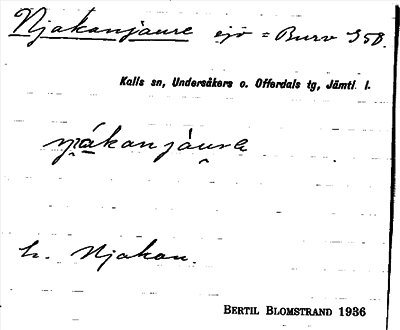 Njakanjaure sjö = Burv 35B.
Kalls sn, Undersåkers o. Offerdals tg, Jämtl. l.
njákanjàurε
h. Njakan.
BERTIL BLOMSTRAND 1936